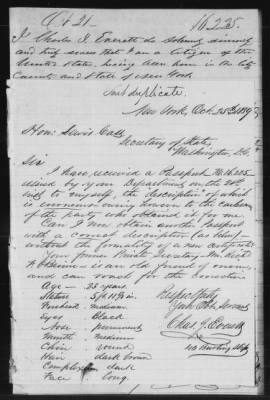 Oct 21
16235
I Charles J. Everett do solemnly
and truly swear that I am a citizen of the
United States, having been born in the City
County and State of New York
Sent duplicate.
New York, Oct. 25th 1859
Hon: Lewis Cass
Secretary of State,
Washington, D.C.
Sir
I have received a Passport No.
issued by your Department on the
to myself, the description of which
is erroneous owing however to the
of the party who obtained it for me.
Can I now obtain another Passport
with a correct description (as below)
without the formality of a new certificate
Your former Private Secretary Mr.
is an old friend of mine,
and can vouch for the correctness
Age — 35 years.
Stature 5 ft in.
Forehead medium
Eyes black
Nose prominent
Mouth medium
Chin round
Hair dark brown
Complexion dark
Face long.
Respectfully
Your Obt. Servant
Chas. J. Everett